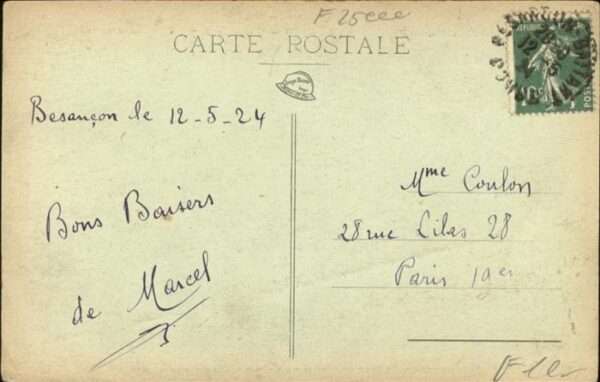 F 25eee
CARTE POSTALE
Besançon le 12-5-24
Bons Baisers
de Marcel
Mme Coulon
28 rue Lilas 28
Paris 19er